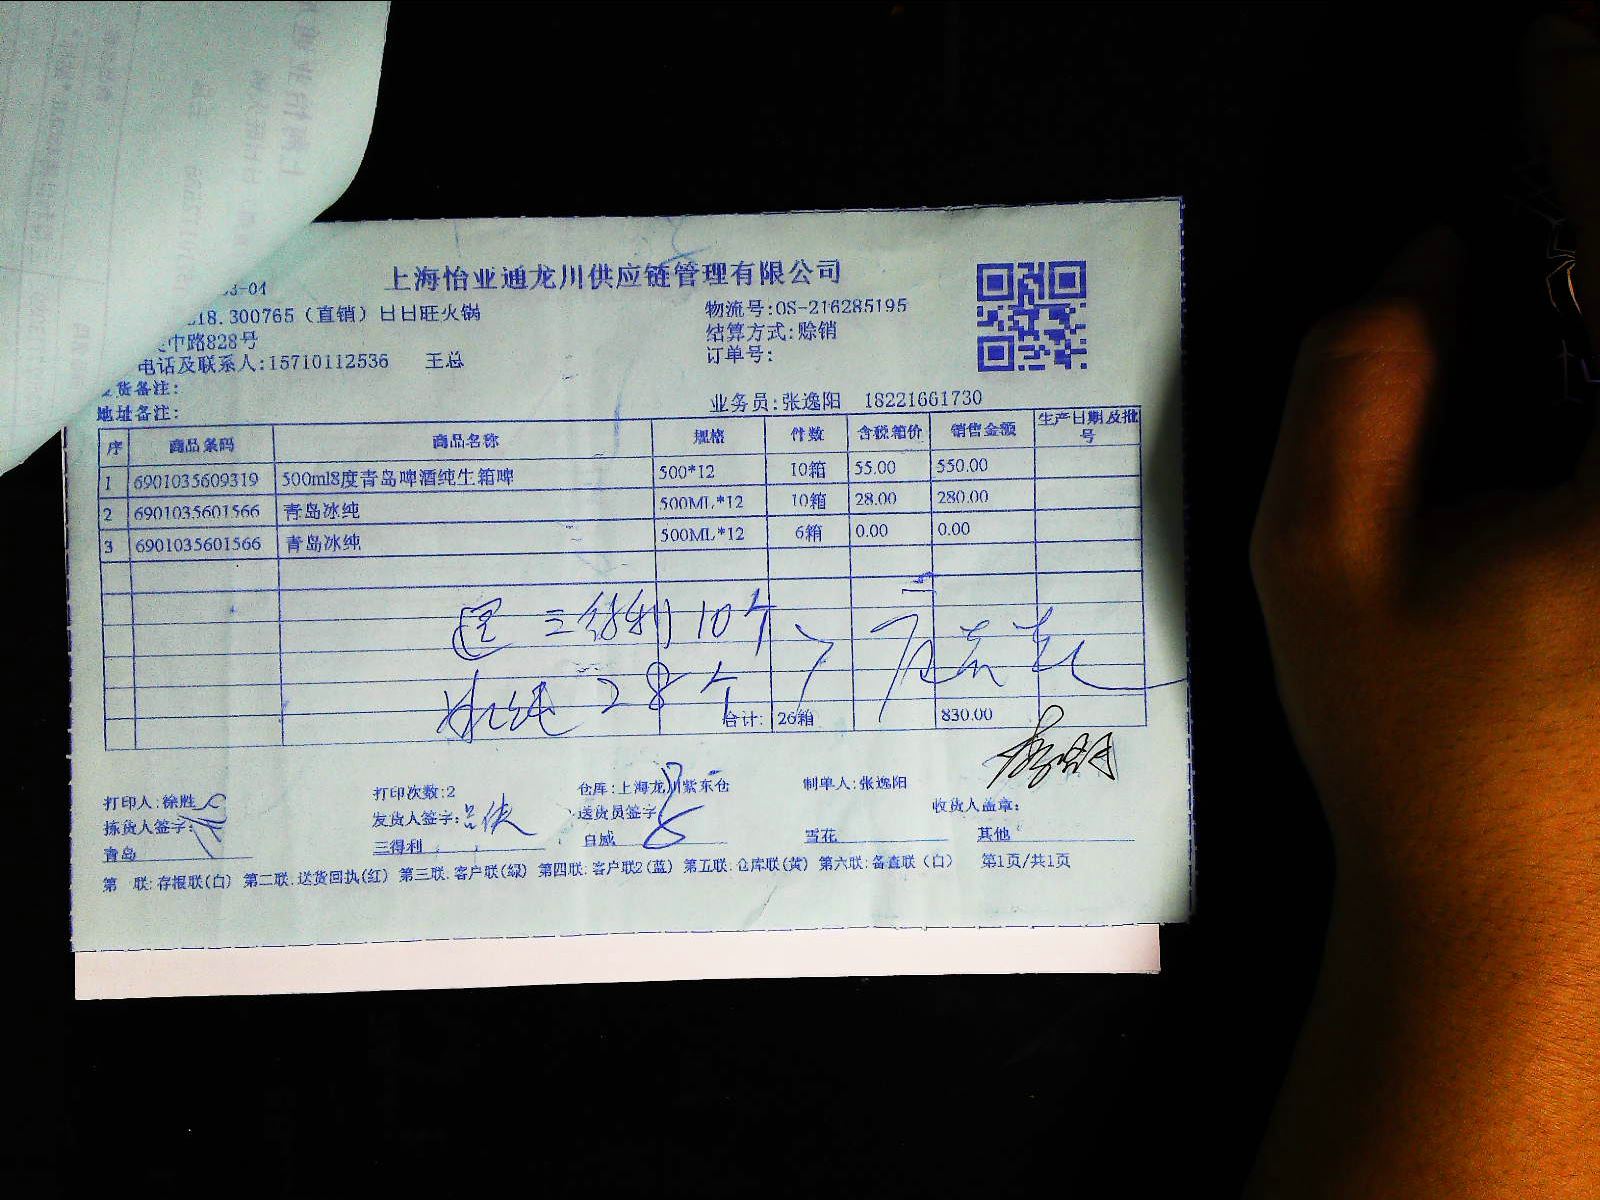 上海怡亚通龙川供应链管理有限公司
03-04
218.300765（直销）日日旺火锅
物流号:OS-216285195
中路828号
结算方式:赊销
电话及联系人:15710112536 王总
订单号:
货备注:
地址备注:
业务员:张逸阳 18221661730
序 商品条码 商品名称 规格 件数 含税箱价 销售金额 生产日期及批号
1 6901035609319 500ml8度青岛啤酒纯生箱啤 500*12 10箱 55.00 550.00
2 6901035601566 青岛冰纯 500ML*12 10箱 28.00 280.00
3 6901035601566 青岛冰纯 500ML*12 6箱 0.00 0.00
退三得利10个
冰纯28个
合计: 26箱 830.00
打印人:徐胜 打印次数:2 仓库:上海龙川紫东仓 制单人:张逸阳
拣货人签字: 发货人签字: 送货员签字 收货人盖章:
青岛 三得利 百威 雪花 其他
第 联:存根联(白) 第二联:送货回执(红) 第三联:客户联(绿) 第四联:客户联2(蓝) 第五联:仓库联(黄) 第六联:备查联（白） 第1页/共1页